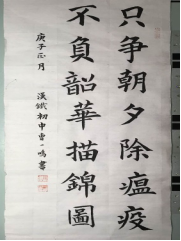 只争朝夕除瘟疫
不負韶華描錦圖
庚子正月
漢鐵初中曹一鳴書